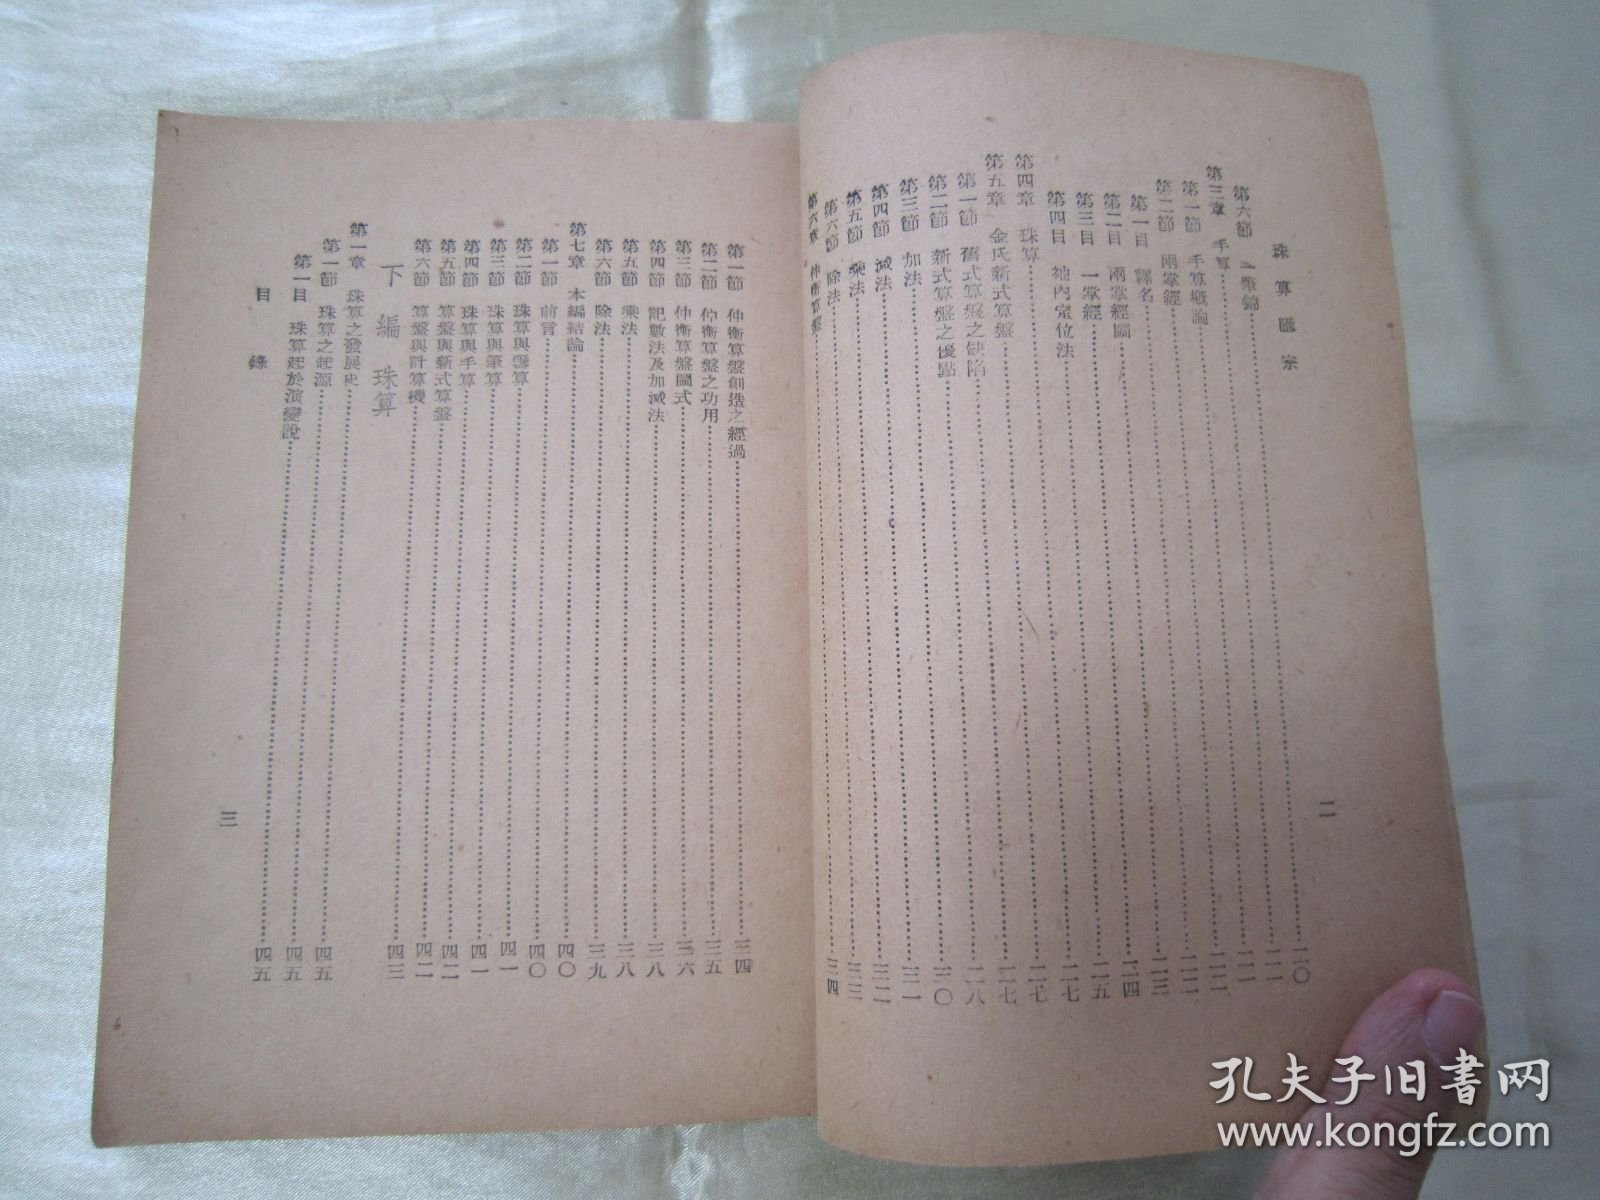 珠算匯宗
二
第六節 一筆錦……二〇
第三章 手算……二一
第一節 手算概論……二一
第二節 兩掌經……二二
第一目 釋名……二二
第二目 兩掌經圖……二三
第三目 一掌經……二四
第四目 袖內定位法……二五
第四章 珠算……二七
第五章 金氏新式算盤……二七
第一節 舊式算盤之缺陷……二七
第二節 新式算盤之優點……二八
第三節 加法……三〇
第四節 減法……三一
第五節 乘法……三二
第六節 除法……三三
第六章 仲衡算盤……三四
第一節 仲衡算盤創造之經過……三四
第二節 仲衡算盤之功用……三五
第三節 仲衡算盤圖式……三六
第四節 記數法及加減法……三八
第五節 乘法……三八
第六節 除法……三九
第七章 本編結論……四〇
第一節 前言……四〇
第二節 珠算與籌算……四一
第三節 珠算與筆算……四一
第四節 珠算與手算……四二
第五節 算盤與新式算盤……四二
第六節 算盤與計算機……四三
下編 珠算
第一章 珠算之發展史……四五
第一節 珠算之起源……四五
第一目 珠算起於演變說……四五
目錄
三
孔夫子旧书网
www.kongfz.com